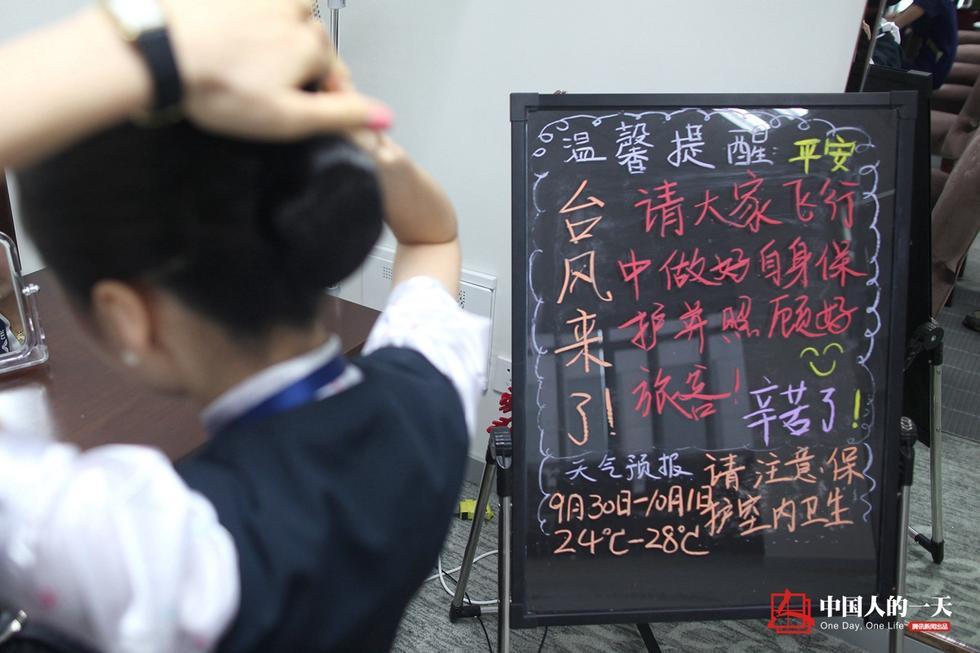 温馨提醒 平安
台风来了!
请大家飞行
中做好自身保
护并照顾好
旅客!
辛苦了!
天气预报
9月30日-10月1日
24℃-28℃
请注意保
护室内卫生
中国人的一天
One Day, One Life
腾讯新闻出品